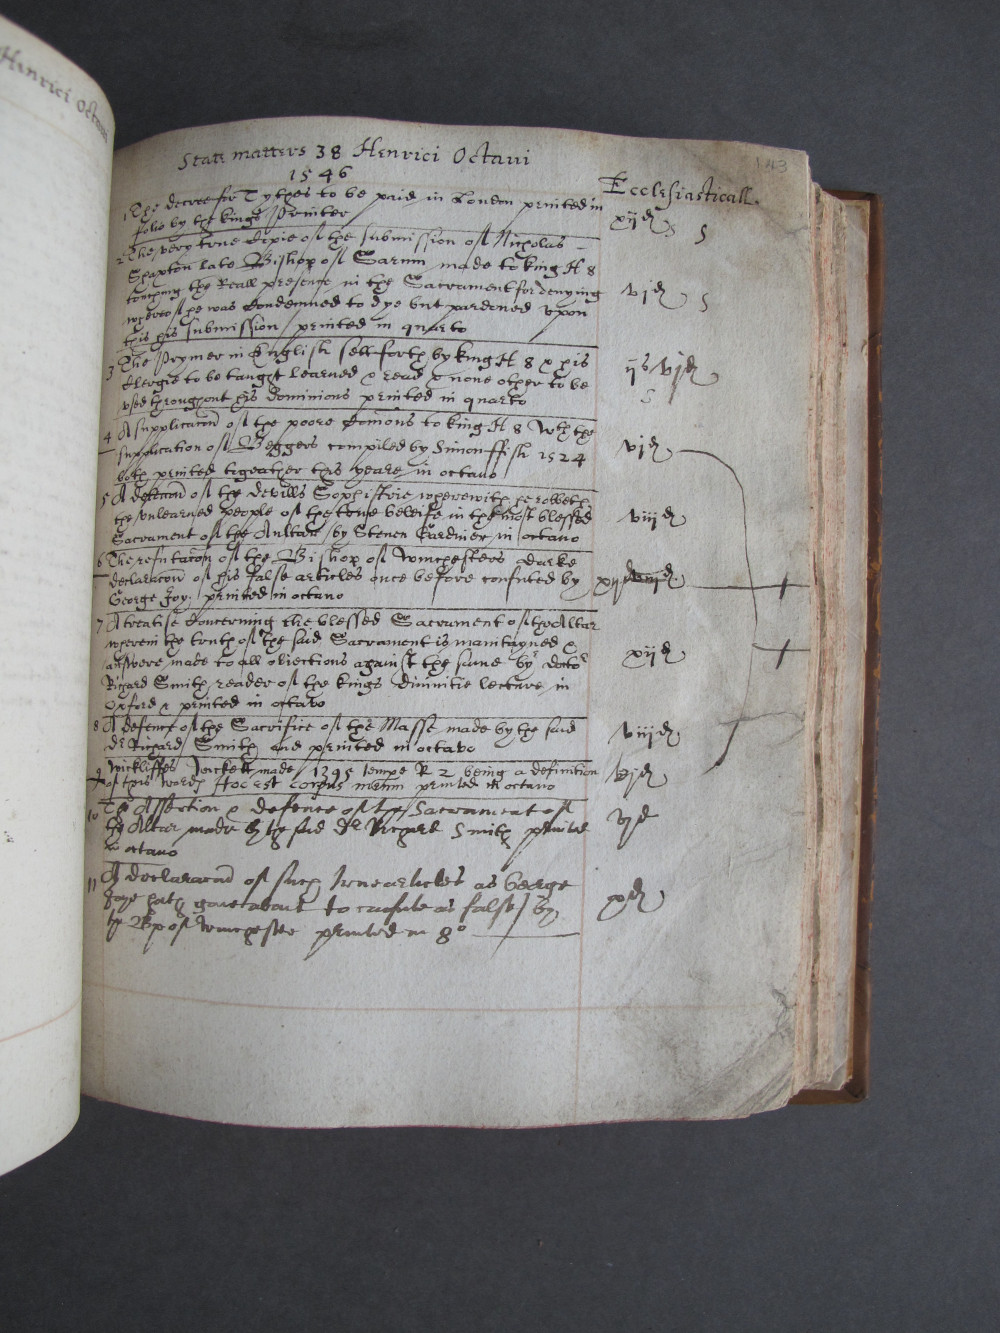 Henrici Octaui
143
State matters 38 Henrici Octaui
1546
Ecclesiasticall.
1 The decree for Tythes to be paid in London printed in
folio by the kings Printer xijd s
2 The very true copie of the submission of Nicholas
Shaxton late Bishop of Sarum made to king H 8
touching the Reall presence in the Sacrament for denying vjd s
whereof he was Condemned to dye but pardoned vpon
this his submission printed in quarto
3 The Prymer in English sett forth by king H 8 & his ijs vjd
Clergie to be taught learned & read & none other to be
vsed throughout his dominions printed in quarto s
4 A supplicacon of the poore Comons to king H 8 with the
supplication of Beggers compiled by Simon ffish 1524 vjd
both printed togeather this yeare in octauo
5 A detecon of the Devills Sophistrie wherewith he robbeth
the vnlearned people of the true beleife in the most blessed viijd
Sacrament of the Aultar by Steuen Gardiner in octauo
6 The refutacon of the Bishop of Winchesters darke
declaracon of his false articles once before confuted by xijd +
George Joy. printed in octauo
7 A treatise Concerning the blessed Sacrament of the Altar
wherein the truth of the said Sacrament is maintayned &
answere made to all obiections against the same by doctr xijd +
Richard Smith reader of the kings Diuinitie lecture in
Oxford & printed in octavo
8 A defence of the Sacrifice of the Masse made by the said
Dr Richard Smith and printed in octavo viijd
9 Wickliffes Wickett made 1395 tempe R 2 being a definition
of this words Hoc est corpus meum printed in octavo vjd
10 The Assertion & defence of the Sacrament of
the Altar made by the said Dr Richard Smith printed vjd
in octauo
11 A declaracon of such true articles as George
Joye hath gone about to confute as false by xd
the Bp of Winchester printed in 8o